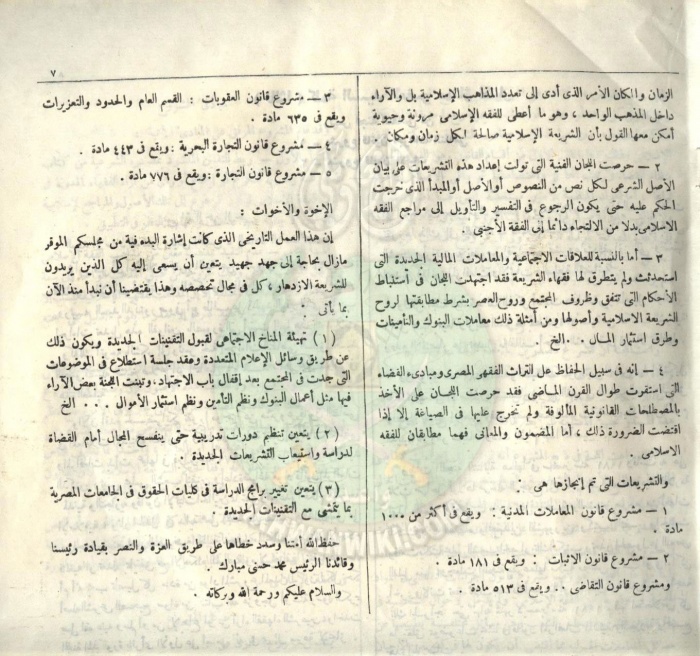 ٧
الزمان والمكان الأمر الذى أدى إلى تعدد المذاهب الإسلامية بل والآراء
داخل المذهب الواحد ، وهو ما أعطى للفقه الإسلامى مرونة وحيوية
أمكن معها القول بأن الشريعة الإسلامية صالحة لكل زمان ومكان .
٢ ــ حرصت اللجان الفنية التى تولت إعداد هذه التشريعات على بيان
الأصل الشرعى لكل نص من النصوص أو الأصل أو المبدأ الذى خرجت
الحكم عليه حتى يكون الرجوع فى التفسير والتأويل إلى مراجع الفقه
الإسلامى بدلا من الالتجاء دائما إلى الفقه الأجنبى .
٣ ــ أما بالنسبة للعلاقات الاجتماعية والمعاملات المالية الجديدة التى
استحدثت ولم يتطرق لها فقهاء الشريعة فقد اجتهدت اللجان فى أستنباط
الأحكام التى تتفق وظروف المجتمع وروح العصر بشرط مطابقتها لروح
الشريعة الاسلامية وأصولها ومن أمثلة ذلك معاملات البنوك والتأمينات
وطرق استثمار المال . . الخ .
٤ ــ إنه فى سبيل الحفاظ على التراث الفقهى المصرى ومبادىء القضاء
التى استقرت طوال القرن الماضى فقد حرصت اللجان على الأخذ
بالمصطلحات القانونية المألوفة ولم تخرج عليها فى الصياغة إلا إذا
اقتضت الضرورة ذلك ، أما المضمون والمعانى فهما مطابقان للفقه
الاسلامى .
والتشريعات التى تم إنجازها هى :
١ ــ مشروع قانون المعاملات المدنية : ويقع فى أكثر من ١٠٠٠
مادة .
٢ ــ مشروع قانون الاثبات : ويقع فى ١٨١ مادة .
ومشروع قانون التقاضى . . ويقع فى ٥١٣ مادة .
٣ ــ مشروع قانون العقوبات : القسم العام والحدود والتعزيرات
ويقع فى ٦٣٥ مادة .
٤ ــ مشروع قانون التجارة البحرية : ويقع فى ٤٤٣ مادة .
٥ ــ مشروع قانون التجارة : ويقع فى ٧٧٦ مادة .
الإخوة والأخوات :
إن هذا العمل التاريخى الذى كانت إشارة البدء فية من مجلسكم الموقر
مازال بحاجة إلى جهد جهيد يتعين أن يسعى إليه كل الذين يريدون
للشريعة الازدهار ، كل فى مجال تخصصه وهذا يقتضينا أن نبدأ منذ الآن
بما يأتى :
( ١ ) تهيئة المناخ الاجتماعى لقبول التقنينات الجديدة ويكون ذلك
عن طريق وسائل الإعلام المتعددة وعقد جلسة استطلاع فى الموضوعات
التى جدت فى المجتمع بعد إقفال باب الاجتهاد ، وتبنت اللجنة بعض الآراء
فيها مثل أعمال البنوك ونظم التأمين ونظم استثمار الأموال . . . الخ
( ٢ ) يتعين تنظيم دورات تدريبية حتى ينفسح المجال أمام القضاة
لدراسة واستيعاب التشريعات الجديدة .
( ٣ ) يتعين تغيير برامج الدراسة فى كليات الحقوق فى الجامعات المصرية
بما يتمشى مع التقنينات الجديدة .
حفظ الله أمتنا وسدد خطاها على طريق العزة والنصر بقيادة رئيسنا
وقائدنا الرئيس محمد حسنى مبارك .
والسلام عليكم ورحمة الله وبركاته .